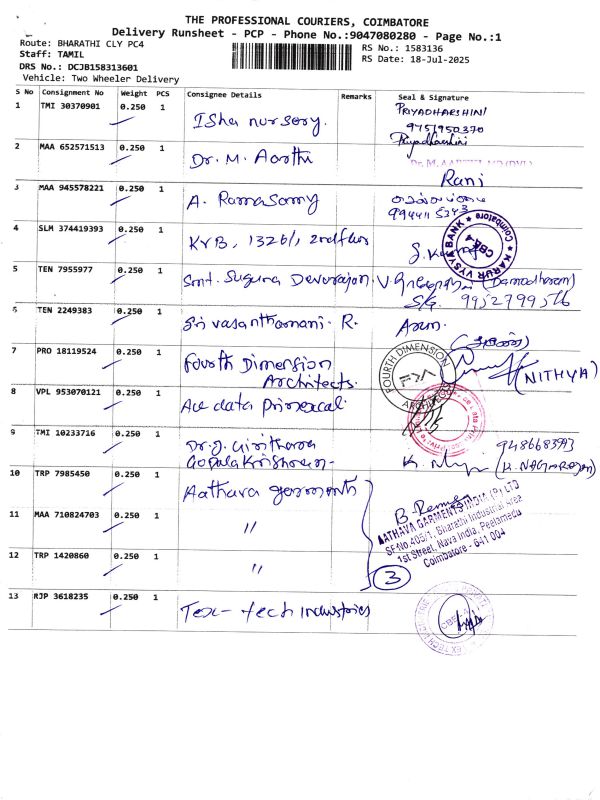 THE PROFESSIONAL COURIERS, COIMBATORE
Delivery Runsheet - PCP - Phone No.:9047080280 - Page No.:1
Route: BHARATHI CLY PC4
RS No.: 1583136
Staff: TAMIL
RS Date: 18-Jul-2025
DRS No.: DCJB158313601
Vehicle: Two Wheeler Delivery
S No Consignment No Weight PCS Consignee Details Remarks Seal & Signature
1 TMI 30370901 0.250 1 Isha nursery. PRIYADHARSHINI
9751950370
Priyadharshini
2 MAA 652571513 0.250 1 Dr. M. Aarthi
Rani
3 MAA 945578221 0.250 1 A. Ramasamy
4 SLM 374419393 0.250 1 KVB, 1326/1, 2nd floor
KARUR VYSYA BANK
Coimbatore
CBE-4
5 TEN 7955977 0.250 1 Smt. Suguna Devarajan. (Damodharan)
9952799576
6 TEN 2249383 0.250 1 Sri vasanthamani. R. Arun.
7 PRO 18119524 0.250 1 Fourth Dimension
Architects.
FOURTH DIMENSION
FDA
ARCHITECTS
(NITHYA)
8 VPL 953070121 0.250 1 Ace data
9 TMI 10233716 0.250 1 Dr. J. Girithara
Gopala Krishnan
9486683593
(K. NAGARAJAN)
10 TRP 7985450 0.250 1 Aathava garments
11 MAA 710824703 0.250 1 "
AATHAVA GARMENTS INDIA (P) LTD
SF.No.405/1, Bharathi Industrial Area
1st Street, Nava India, Peelamedu
Coimbatore - 641 004
12 TRP 1420860 0.250 1 "
3
13 RJP 3618235 0.250 1 Tex-tech industries